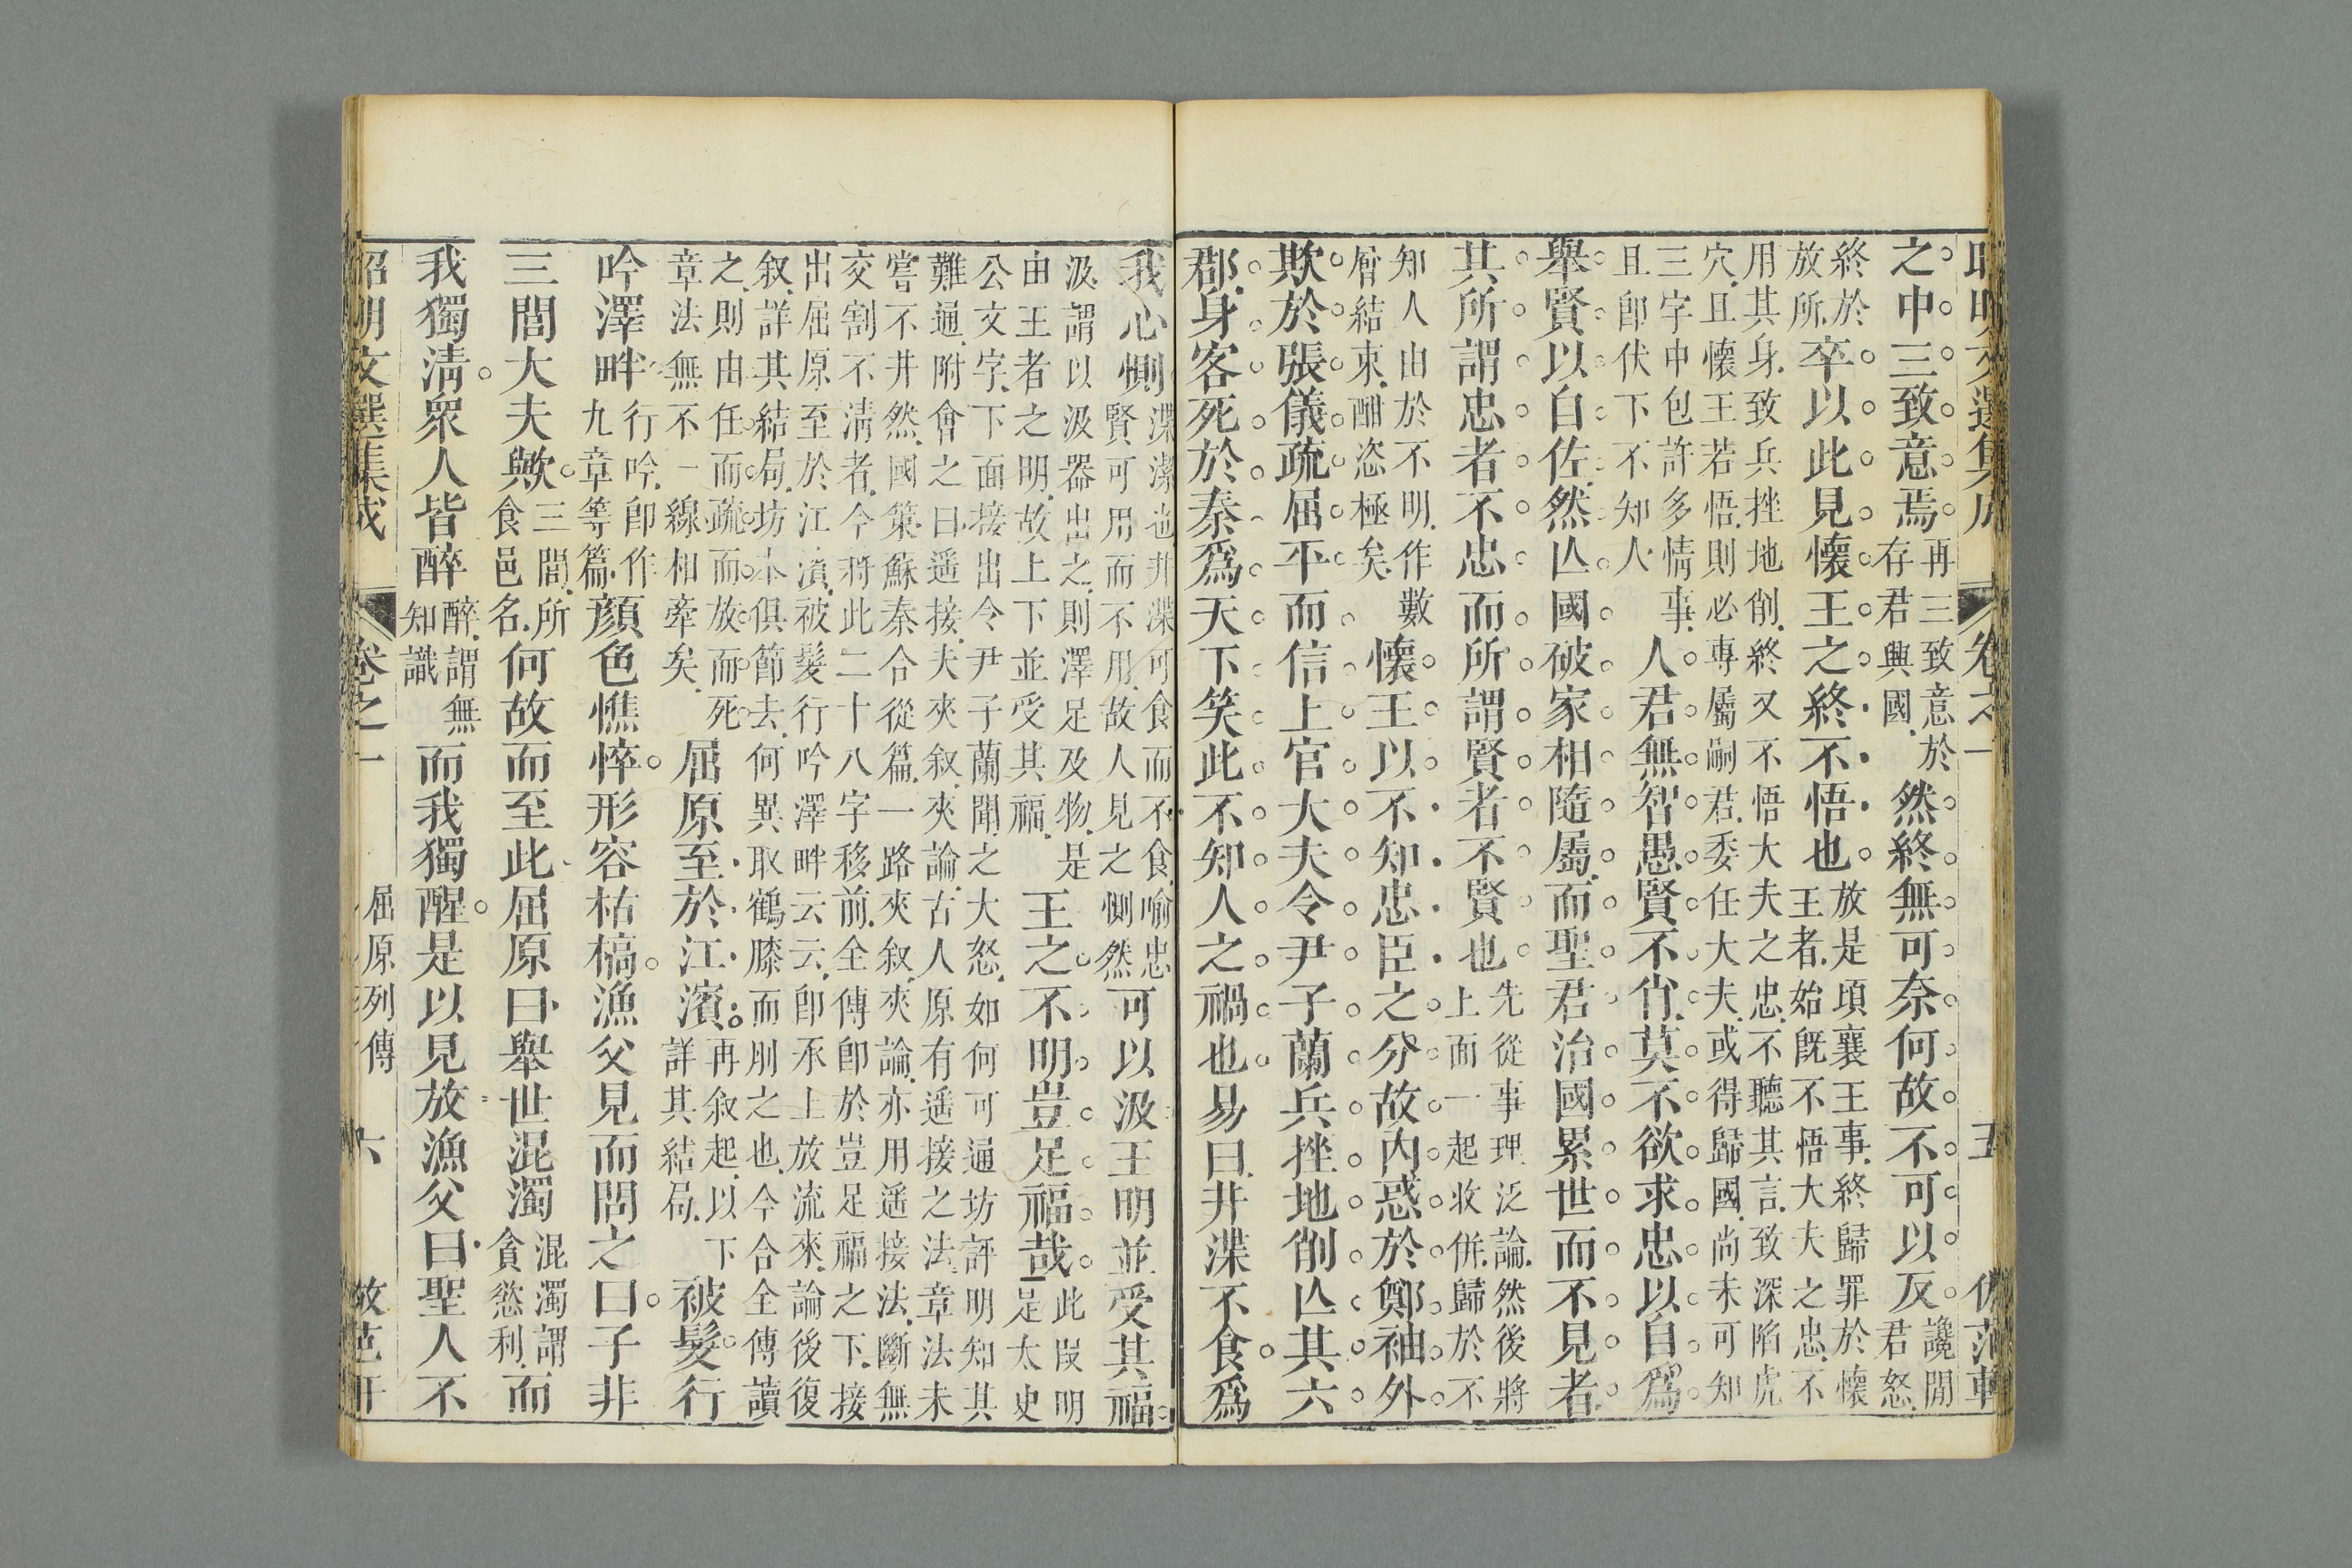 昭明文選集成 卷之一 五
之中三致意焉再三致意於存君興國然終無可奈何故不可以反讒閒君怒
終於放所卒以此見懷王之終不悟也放是頃襄王事終歸罪於懷王者始旣不悟大夫之忠不
用其身致兵挫地削終又不悟大夫之忠不聽其言致深陷虎
穴且懷王若悟則必專屬嗣君委任大夫或得歸國尚未可知
三字中包許多情事且卽伏下不知人人君無智愚賢不肖莫不欲求忠以自爲
舉賢以自佐然亾國破家相隨屬而聖君治國累世而不見者
其所謂忠者不忠而所謂賢者不賢也先從事理泛論然後將上面一起收併歸於不
知人由於不明作數層結束酣恣極矣懷王以不知忠臣之分故內惑於鄭袖外
欺於張儀疏屈平而信上官大夫令尹子蘭兵挫地削亾其六
郡身客死於秦爲天下笑此不知人之禍也易曰井渫不食爲
我心惻渫潔也井渫可食而不食喻忠賢可用而不用故人見之惻然可以汲王明並受其福
汲謂以汲器出之則澤足及物是由王者之明故上下並受其福王之不明豈足福哉此段明足太史
公文字下面接出令尹子蘭聞之大怒如何可通坊評明知其
難通附會之曰遥接夫夾叙夾論古人原有遥接之法章法未
嘗不井然國策蘇秦合從篇一路夾叙夾論亦用遥接法斷無
交割不淸者今將此二十八字移前全傳卽於豈足福之下接
出屈原至於江濱被髮行吟澤畔云云卽承上放流來論後復
叙詳其結局坊本俱節去何異取鶴膝而刖之也今合全傳讀
之則由任而疏而放而死章法無不一線相牽矣屈原至於江濱再叙起以下詳其結局被髮行
吟澤畔行吟卽作九章等篇顏色憔悴形容枯槁漁父見而問之曰子非
三閭大夫歟三閭所食邑名何故而至此屈原曰舉世混濁混濁謂貪慾利而
我獨淸衆人皆醉醉謂無知識而我獨醒是以見放漁父曰聖人不
昭明文選集成 卷之一 屈原列傳 六